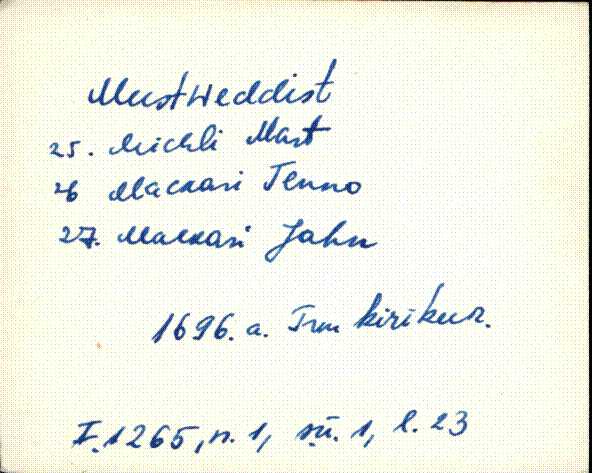 Mustweddist
25. Michli Mart
26 Mackari Tenno
27. Mackari Jahn
1696. a. Trm kirikur.
F. 1265, n. 1, sü. 1, l. 23